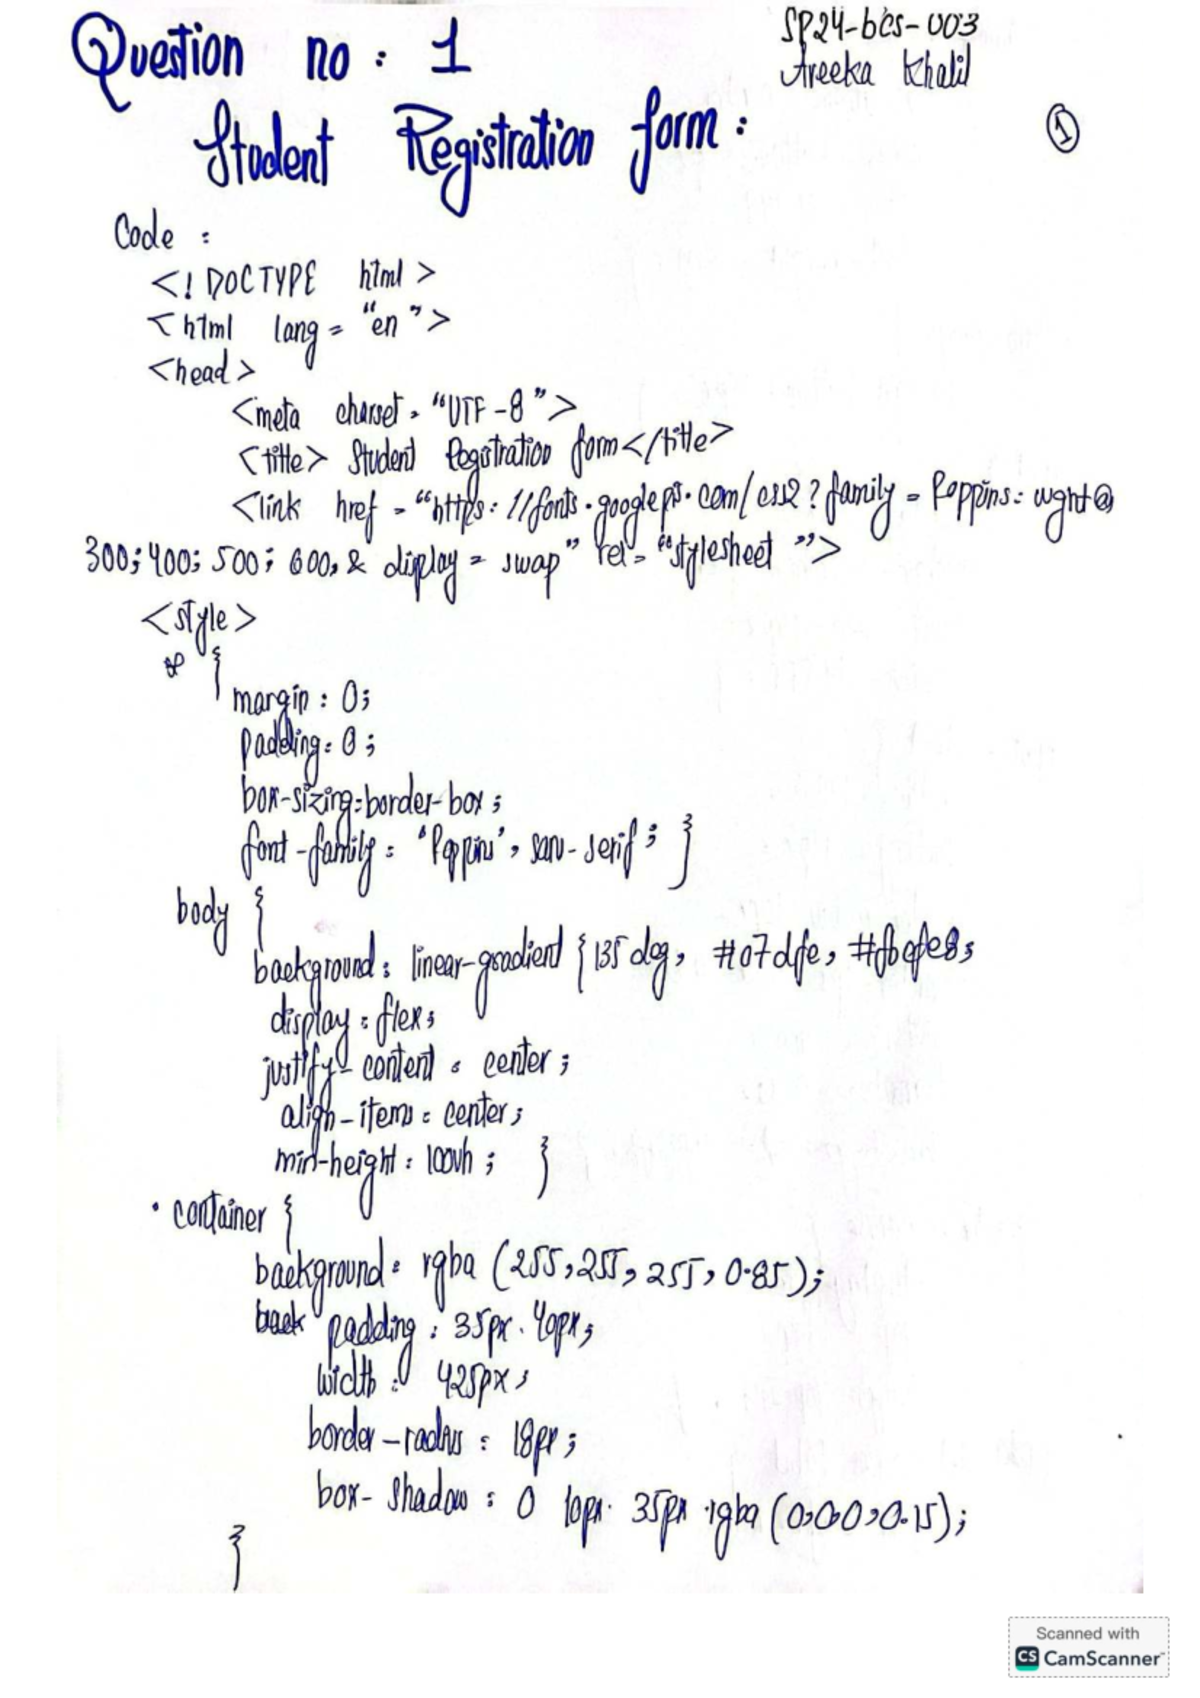 SP24-bcs-003
Question no : 1
Areeka Khalil
Student Registration form :
1
Code :
<! DOCTYPE html >
<html lang = "en ">
<head>
<meta charset = "UTF -8 ">
<title> Student Registration form </title>
<link href = "https: //fonts.googlepis.com/css2? family = Poppins: wght@
300;400; 500; 600, & display = swap" rel= "stylesheet ">
<style>
* {
margin : 0;
padding: 0;
box-sizing:border-box;
font-family : 'Poppins', sans-serif ; }
body {
background: linear-gradient {135 deg, #a7dfe, #fbqfe8;
display : flex;
justify- content : center ;
align-items : center;
min-height : 100vh ; }
. container {
background: rgba (255,255, 255, 0.85);
back padding : 35px . 40px;
width : 425px ;
border-radius : 18px ;
box- shadow : 0 10px . 35px . rgba (0,0,0,0.15);
}
Scanned with
CS CamScanner